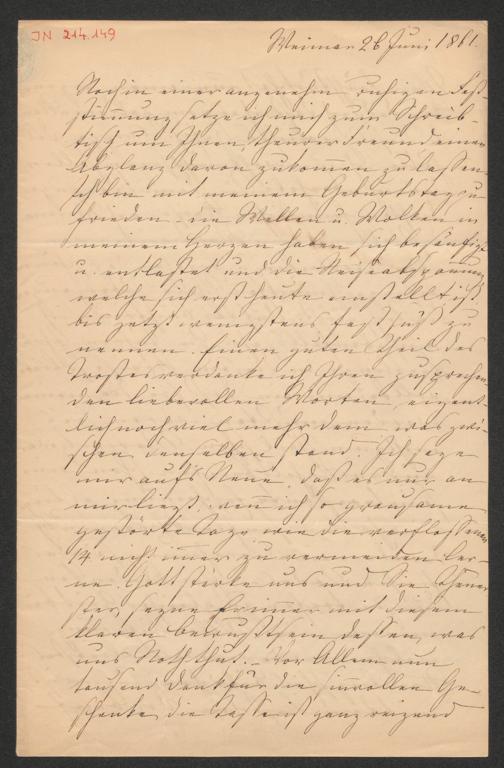 JN 214.149
Weimar 26 Juni 1861.
Noch in einer angenehm ruhigen Fest-
stimmung setze ich mich zum Schreib-
tisch um Ihnen, theurer Freund einen
Abglanz davon zukommen zu lassen.
Ich bin mit meinem Geburtstag zu-
frieden – die Wellen u. Wolken in
meinem Herzen haben sich besänftigt
u. entlastet und die Reiseabspannung
welche sich erst heute einstellt ist
bis jetzt wenigstens fast süß zu
nennen. Einen guten Theil des
Trostes verdanke ich Ihren zusprechen
den liebevollen Worten, eigent-
lich noch viel mehr dem was zwi-
schen denselben stand. Ich sage
mir aufs Neue, daß es nur an
mir liegt, wenn ich so grausame
gestörte Tage wie die verflossenen
14 nicht immer zu vermeiden ler-
ne. Gott stärke uns und Sie, Theuer-
ster, segne Er immer mit diesem
klaren Bewußtsein dessen, was
uns Noth thut. – Vor Allem nun
tausend Dank für die sinnvollen Ge-
schenke, die Tasse ist ganz reizend